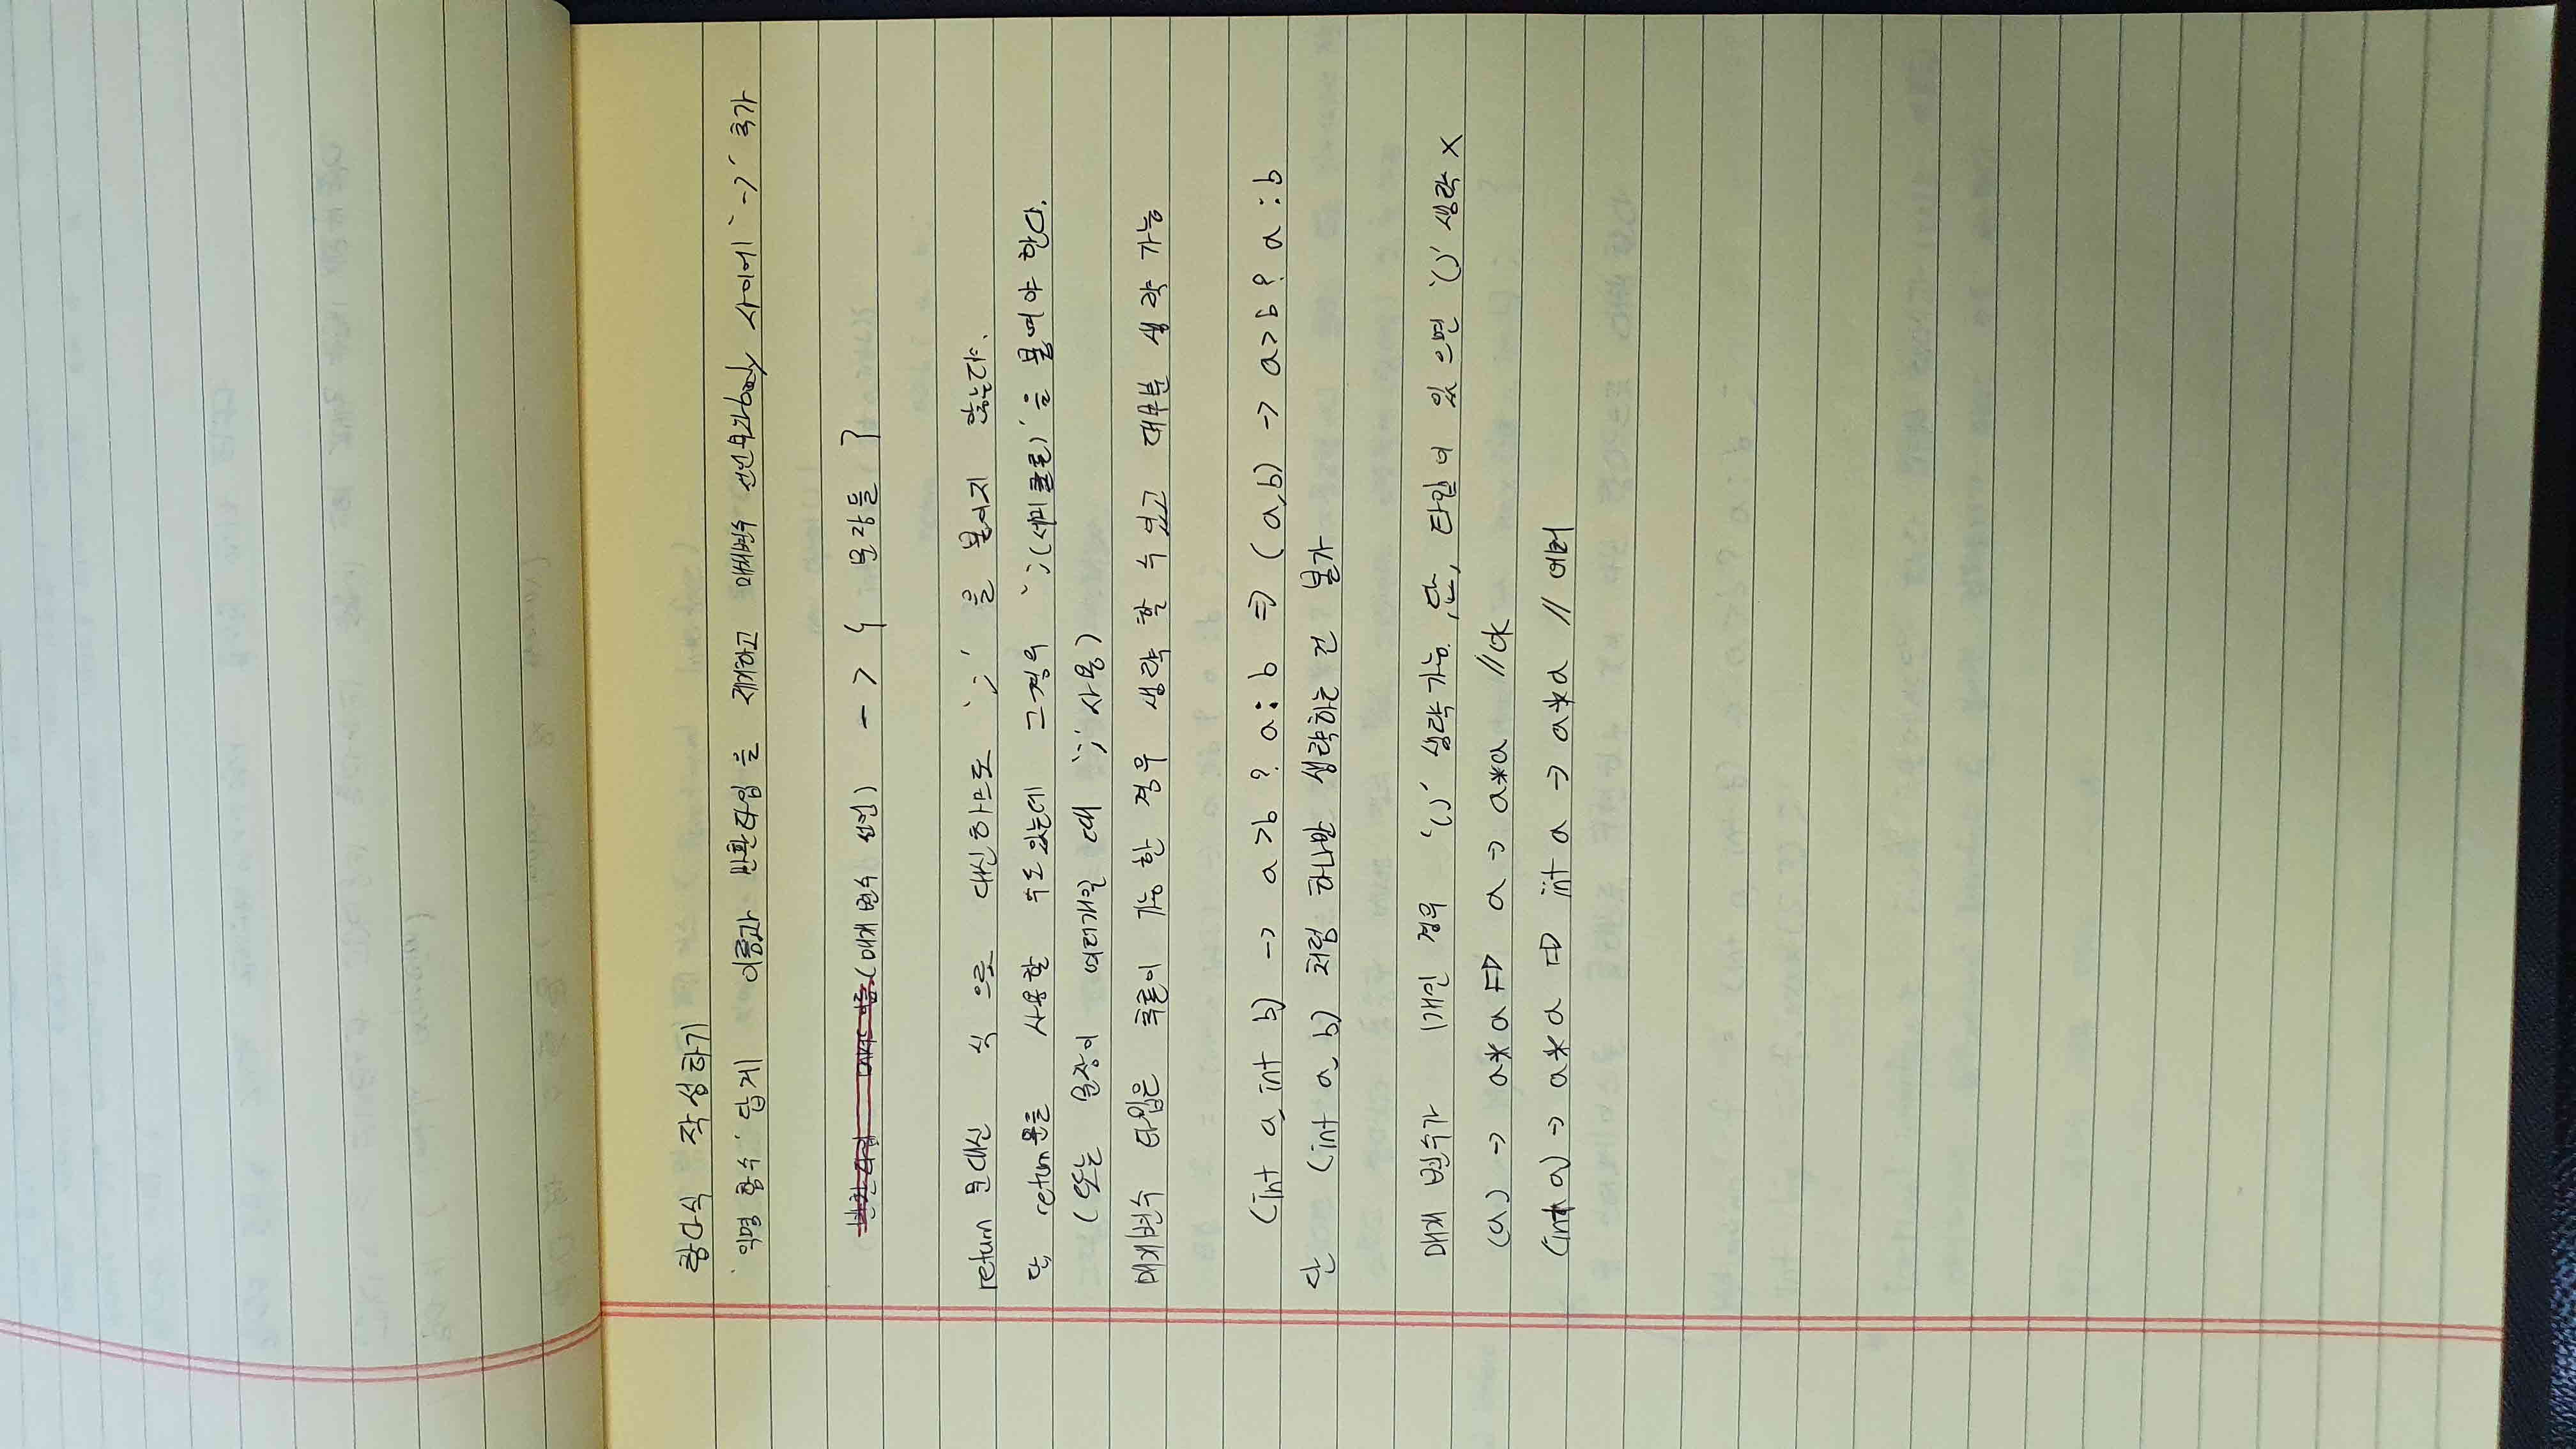 람다식 작성하기
'익명 함수' 답게 이름과 반환타입을 제거하고 매개변수 선언부과 body 사이에 '->' 추가
반환타입 메서드 이름 (매개 변수 선언) -> { 문장들 }
return 문대신 식 으로 대신하므로 ';' 을 붙이지 않는다.
단, return문을 사용할 수도있는데 그경우 ';(세미콜론)'을 붙여야 한다.
(또는 문장이 여러개일 때 ';' 사용)
매개변수 타입은 추론이 가능한 경우 생략 할 수 있고 대부분 생략 가능
(int a, int b) -> a>b ? a : b => (a,b) -> a>b ? a : b
단 (int a, b) 처럼 하나만 생략하는 건 불가
매개 변수가 1개인 경우 '()' 생략가능, 단, 타입이 있으면 '()' 생략 X
(a) -> a*a => a -> a*a //ok
(int a) -> a*a => int a -> a*a // 에러